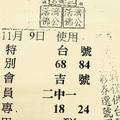 活濟 活濟
佛公 佛公
11月9日 使用
特 台 號
別 68 84
會 吉 號
員 二中一
專 18 24